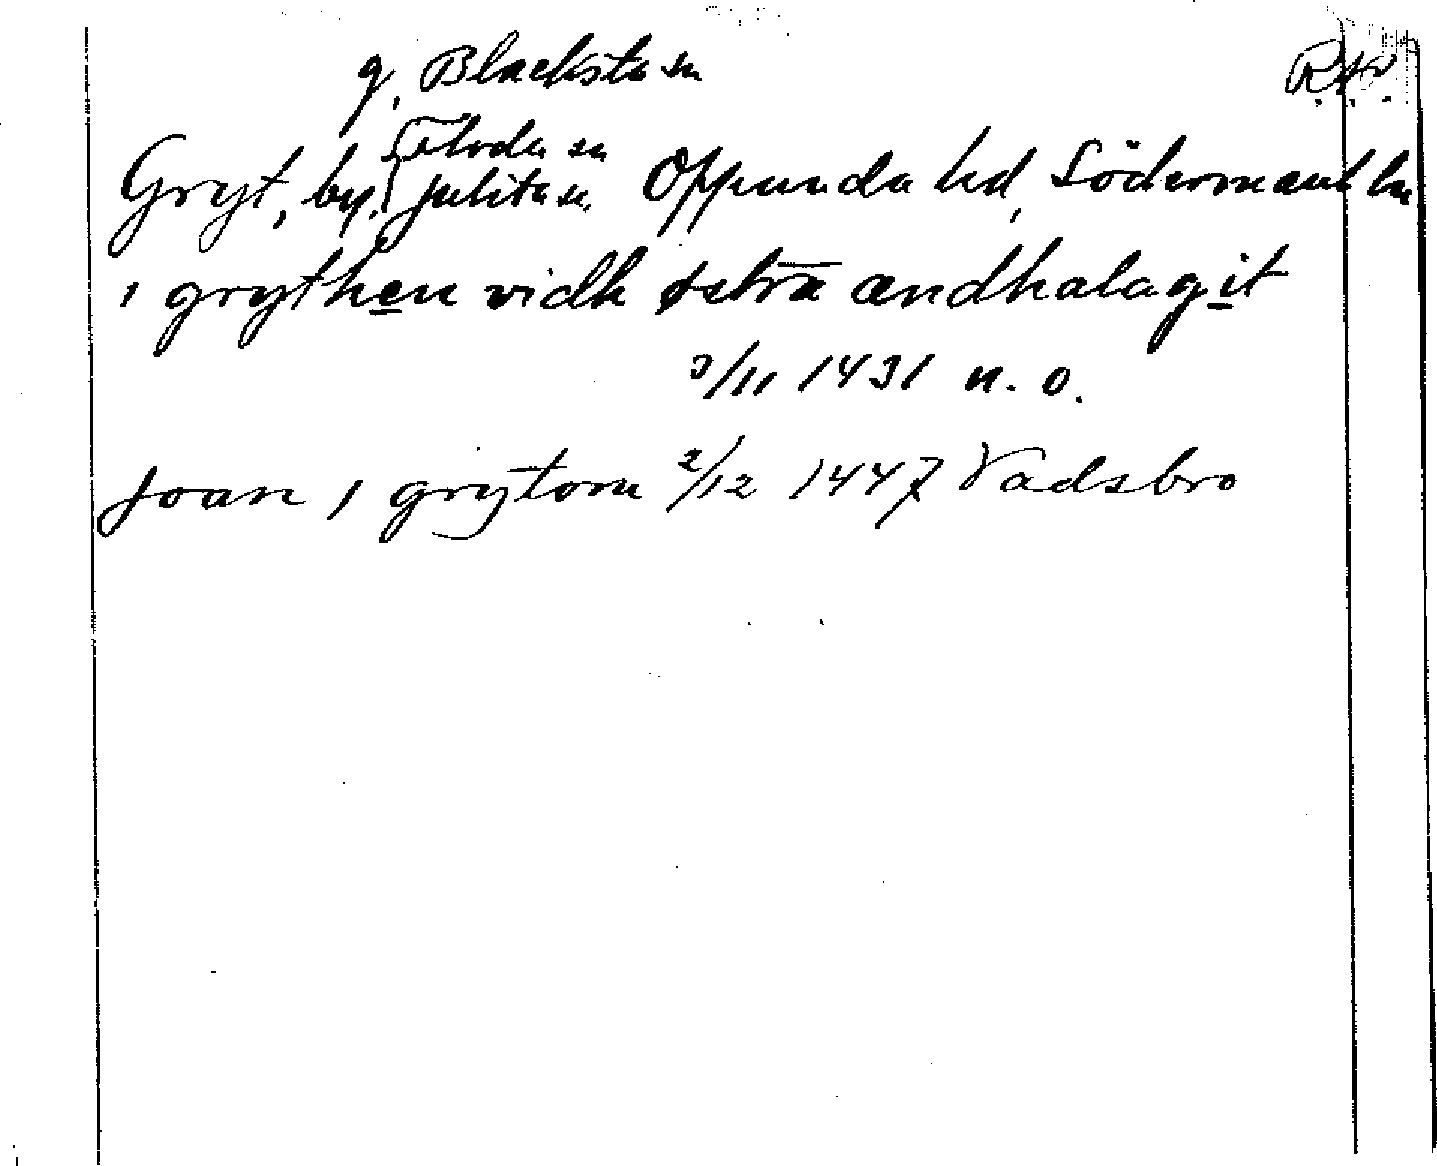 g. Blacksta sn R.A.P.
Floda sn
Gryt, by, Julita sn. Oppunda hd, Södermanl ln
i grythen vidh setra ændhalagit
3/11 1431 n. o.
Joan i grytom 2/12 1447 Vadsbro